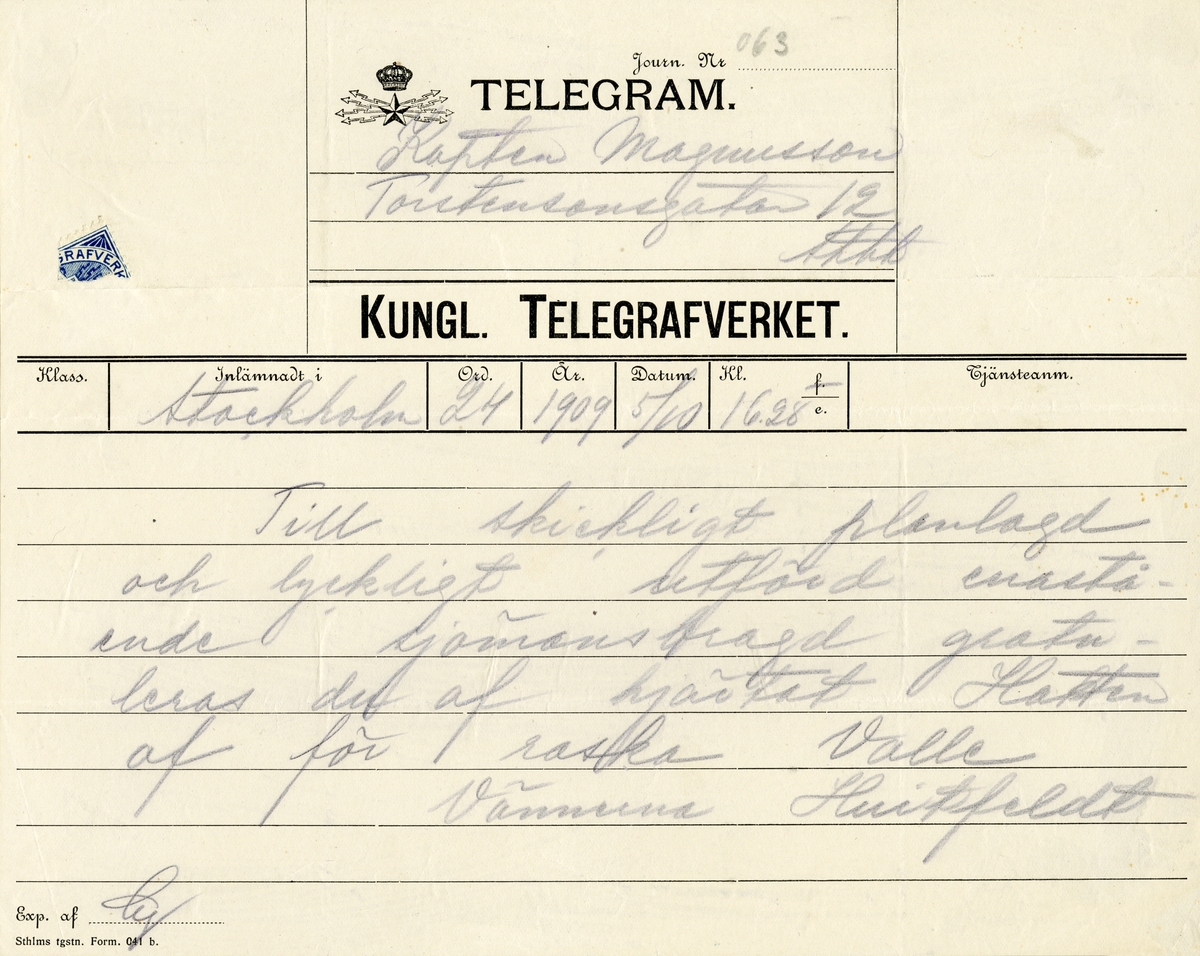 Journ. Nr 063
TELEGRAM.
Kapten Magnusson
Torstensonsgatan 12
Sthlm
KUNGL. TELEGRAFVERKET.
GRAFVERK
Klass. Inlämnadt i Ord. År. Datum. Kl. f. e. Tjänsteanm.
Stockholm 24 1909 5/10 16.28
Till skickligt planlagd
och lyckligt utförd enastå-
ende sjömansbragd gratu-
leras du af hjärtat Hatten
af för raska Valle
Vännerna Huitfeldt
Exp. af
Sthlms tgstn. Form. 041 b.